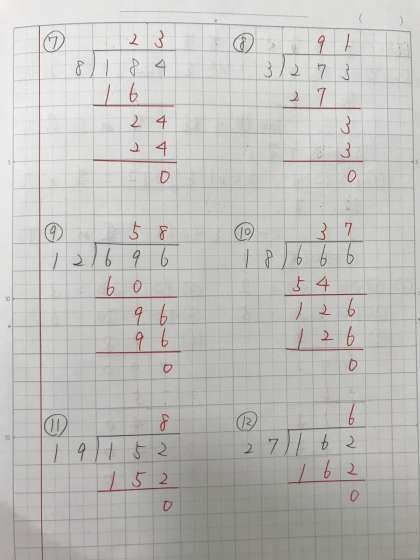 ⑦ 2 3
8)1 8 4
1 6
2 4
2 4
0
⑧ 9 1
3)2 7 3
2 7
3
3
0
⑨ 5 8
1 2)6 9 6
6 0
9 6
9 6
0
⑩ 3 7
1 8)6 6 6
5 4
1 2 6
1 2 6
0
⑪ 8
1 9)1 5 2
1 5 2
0
⑫ 6
2 7)1 6 2
1 6 2
0